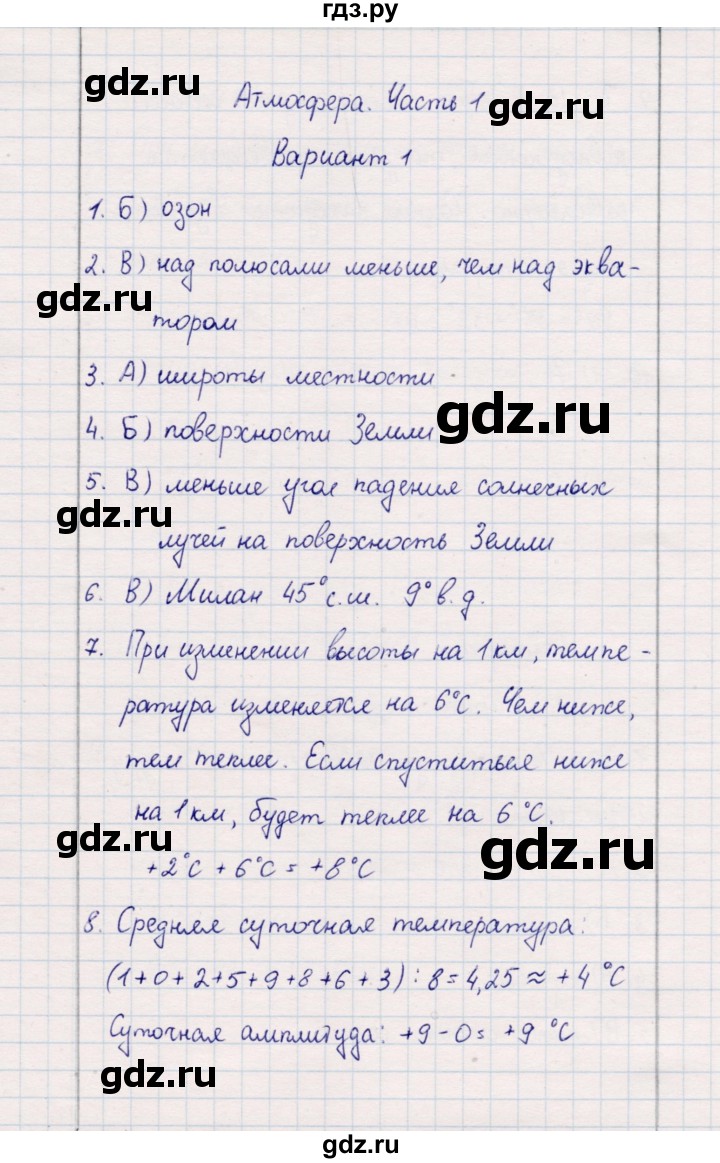 гдз.ру
gdz.ru
Атмосфера. Часть 1
gdz.ru
Вариант 1
1. Б) озон
2. В) над полюсами меньше, чем над эква-
gdz.ru
тором
3. А) широты местности
gdz.ru
4. Б) поверхности Земли
5. В) меньше угол падения солнечных
gdz.ru
лучей на поверхность Земли
6. В) Милан 45°с.ш. 9°в.д.
7. При изменении высоты на 1 км, темпе-
ратура изменяется на 6°С. Чем ниже,
тем теплее. Если спуститься ниже
на 1 км, будет теплее на 6 °С.
gdz.ru
gdz.ru
+2°С + 6°С = +8°С
8. Средняя суточная температура:
(1+0+2+5+9+8+6+3) : 8 = 4,25 ≈ +4 °С
Суточная амплитуда: +9 - 0 = +9 °С
gdz.ru
gdz.ru